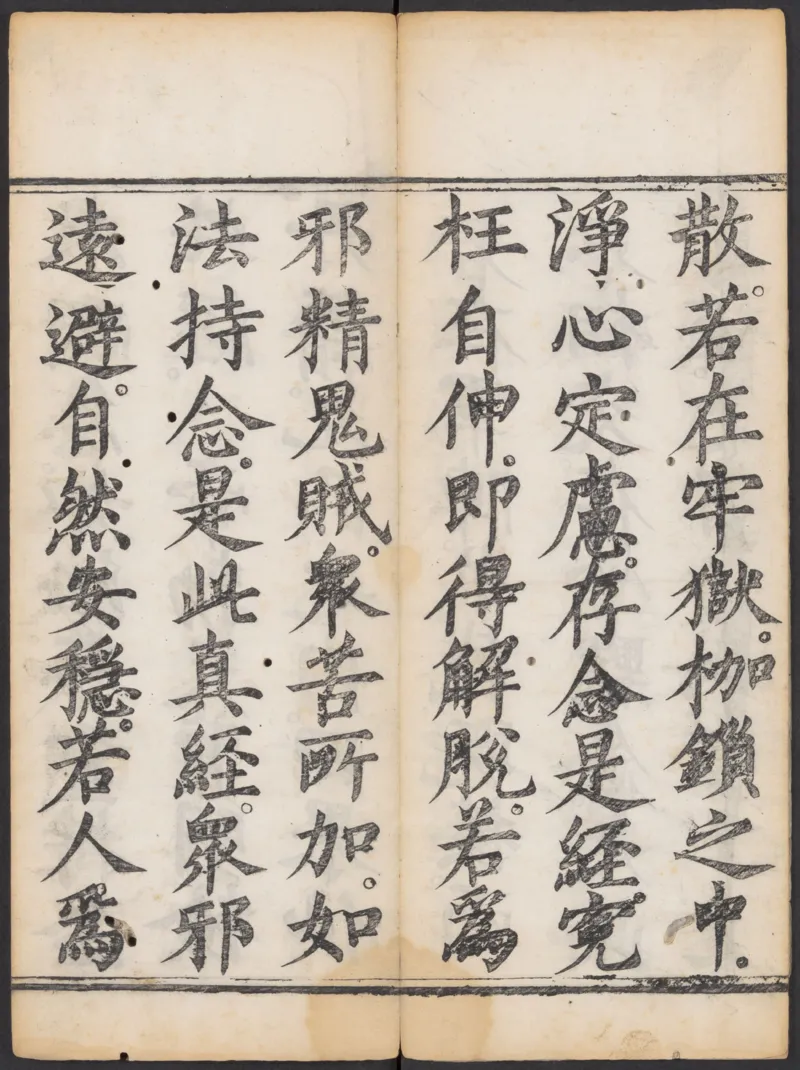 散。若在牢獄。枷鎖之中。
淨心定慮。存念是経。寃
枉自伸。即得解脫。若爲
邪精鬼賊。衆苦所加。如
法持念。是此真経。衆邪
遠避。自然安穏。若人爲